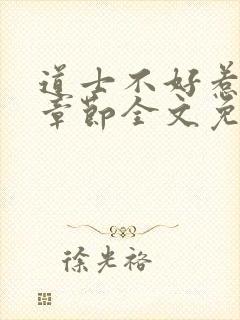 道士不好惹
章节全文免
徐光裕